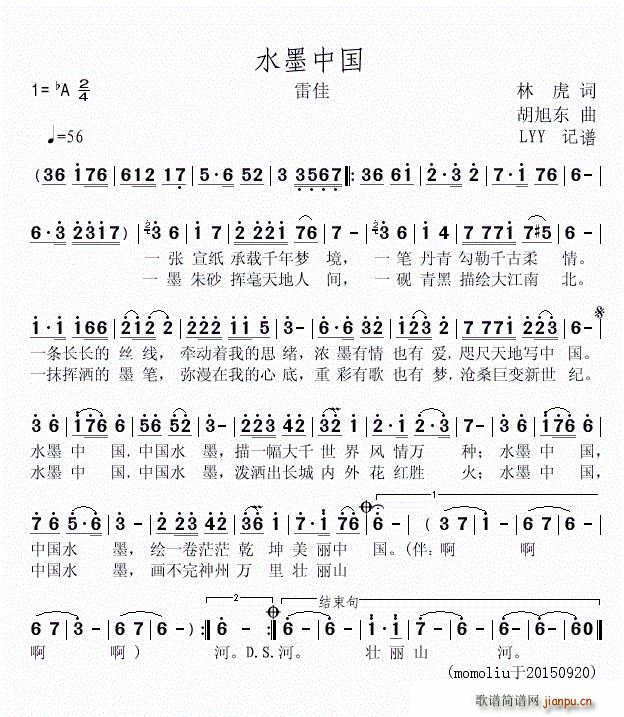 水墨中国
1=♭A 2/4 雷佳 林 虎 词
胡旭东 曲
♩=56 LYY 记谱
(36 176 | 612 17 | 5·6 52 | 3 3567 |: 36 61 | 2·3 2 | 7·1 76 | 6- |
6·3 2317) | 3 6 | 1 7 | 2 221 76 | 7 - | 3 6 | 1 4 | 7 771 7#5 | 6 - |
一 张 宣纸 承载千年梦 境, 一 笔 丹青 勾勒千古柔 情。
一 墨 朱砂 挥毫天地人 间, 一 砚 青黑 描绘大江南 北。
1·1 1 166 | 212 2 | 222 11 5 | 3- | 6·6 32 | 1 23 2 | 7 771 223 | 6- |
一条长长的 丝 线, 牵动着我的思 绪, 浓 墨有情 也有 爱, 咫尺天地写中 国。
一抹挥洒的 墨 笔, 弥漫在我的心 底, 重 彩有歌 也有 梦, 沧桑巨变新世 纪。
3 6 | 176 6 | 56 52 | 3- | 223 42 | 32 1 | 2·1 2·3 | 7- | 3 6 | 176 6 |
水墨 中 国, 中国水 墨, 描一幅大千 世 界 风 情万 种; 水墨 中 国,
水墨 中 国, 中国水 墨, 泼洒出长城 内 外 花 红胜 火; 水墨 中 国,
1
7 6 5·6 | 3 - | 2 223 42 | 36 1 | 7·1 76 | 6 - | ( 37 | 1 - | 67 | 3 - |
中国水 墨, 绘一卷茫茫 乾 坤 美 丽中 国。(伴:啊 啊
中国水 墨, 画不完神州 万 里 壮 丽山
2 结束句
6 7 | 3 - | 6 7 | 6 - ) :| 6 - :| 6 - | 6 - | 1·1 | 7 - | 6 - | 6 - | 60 ||
啊 啊 ) 河。D.S.河。 壮 丽 山 河。
(momoliu于20150920)
歌谱简谱网
jianpu.cn